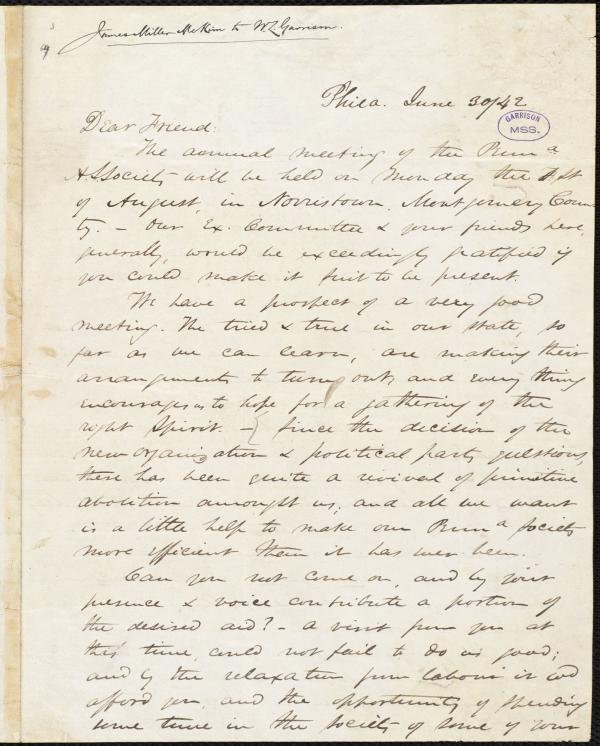 James Miller McKim to W L Garrison.
Phila. June 30/42
GARRISON
MSS.
Dear Friend:
The annual meeting of the Penna
A.S. Society will be held on Monday the 1st
of August, in Norristown, Montgomery Coun-
ty. – Our Ex. Committee & your friends here,
generally, would be exceedingly gratified if
you could make it suit to be present.
We have a prospect of a very good
meeting. The tried & true in our state, so
far as we can learn, are making their
arrangements to turn out, and every thing
encourages us to hope for a gathering of the
right Spirit. – Since the decision of the
new organization & political party questions,
there has been quite a revival of primitive
abolition amongst us; and all we want
is a little help to make our Penna Society
more efficient than it has ever been.
Can you not come on, and by your
presence & voice contribute a portion of
the desired aid? – A visit from you at
this time, could not fail to do us good;
and by the relaxation from labour it wd
afford you, and the opportunity of spending
some time in the society of some of your